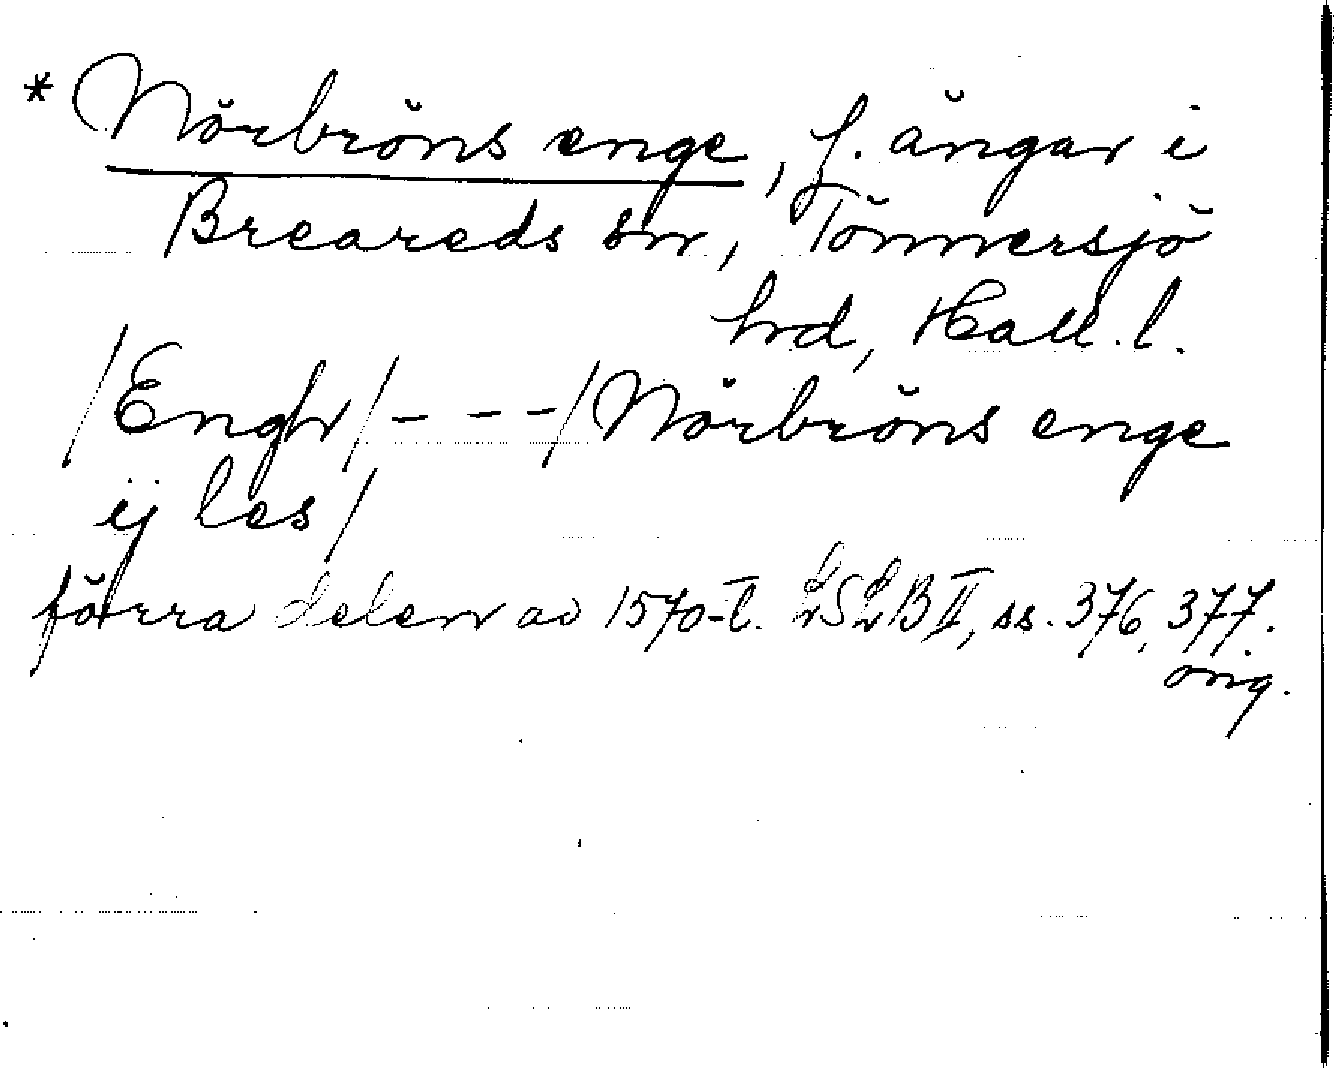 * Nörbröns enge, f. ängar i
Breareds sn, Tönnersjö
hd, Hall. l.
/Engh/ - - - /Nörbröns enge
ij les/
förra delen av 1570-t. LSLB II, ss. 376, 377.
orig.